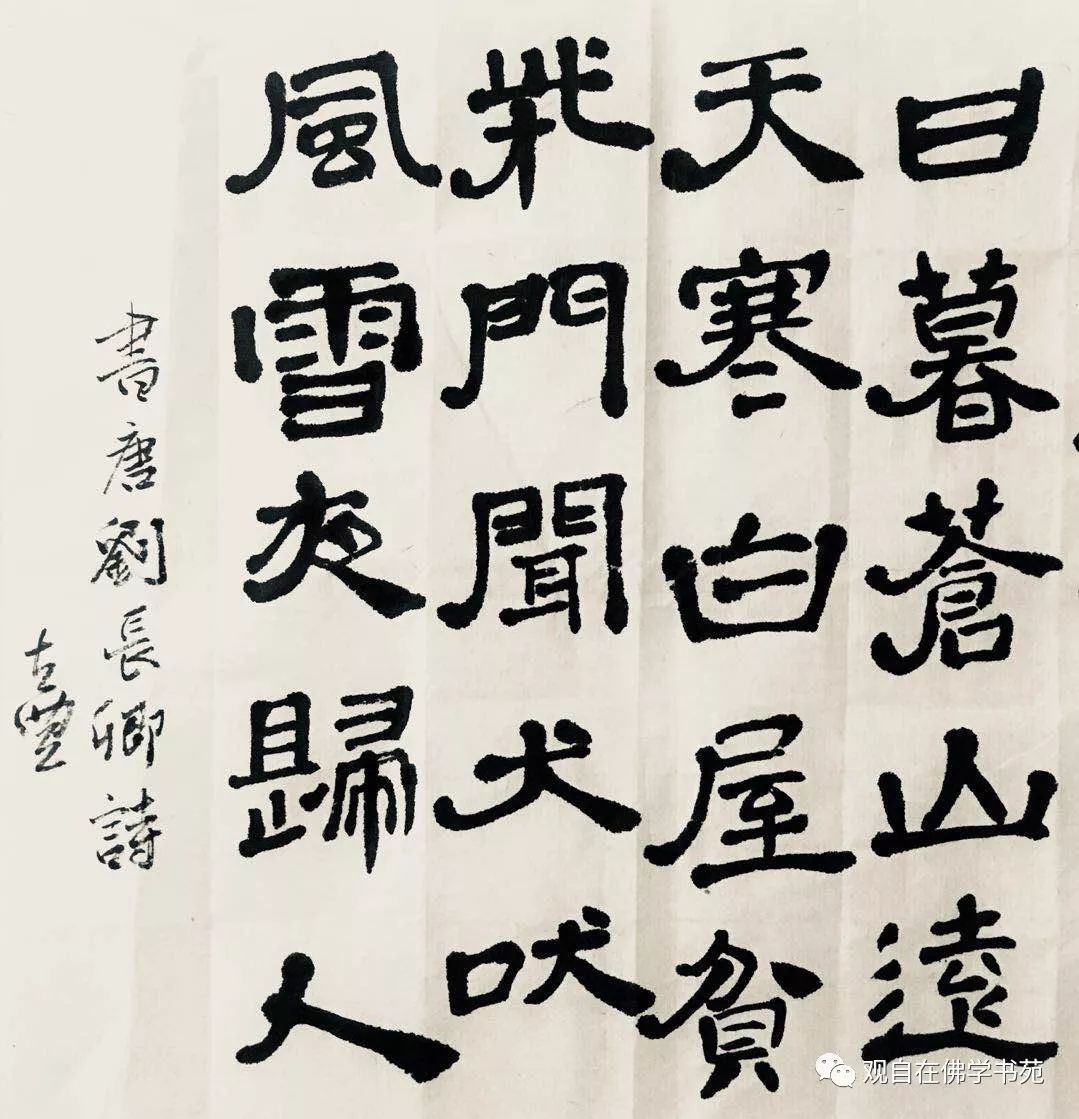 日暮蒼山遠
天寒白屋貧
柴門聞犬吠
風雪夜歸人
書唐劉長卿詩
观自在佛学书苑